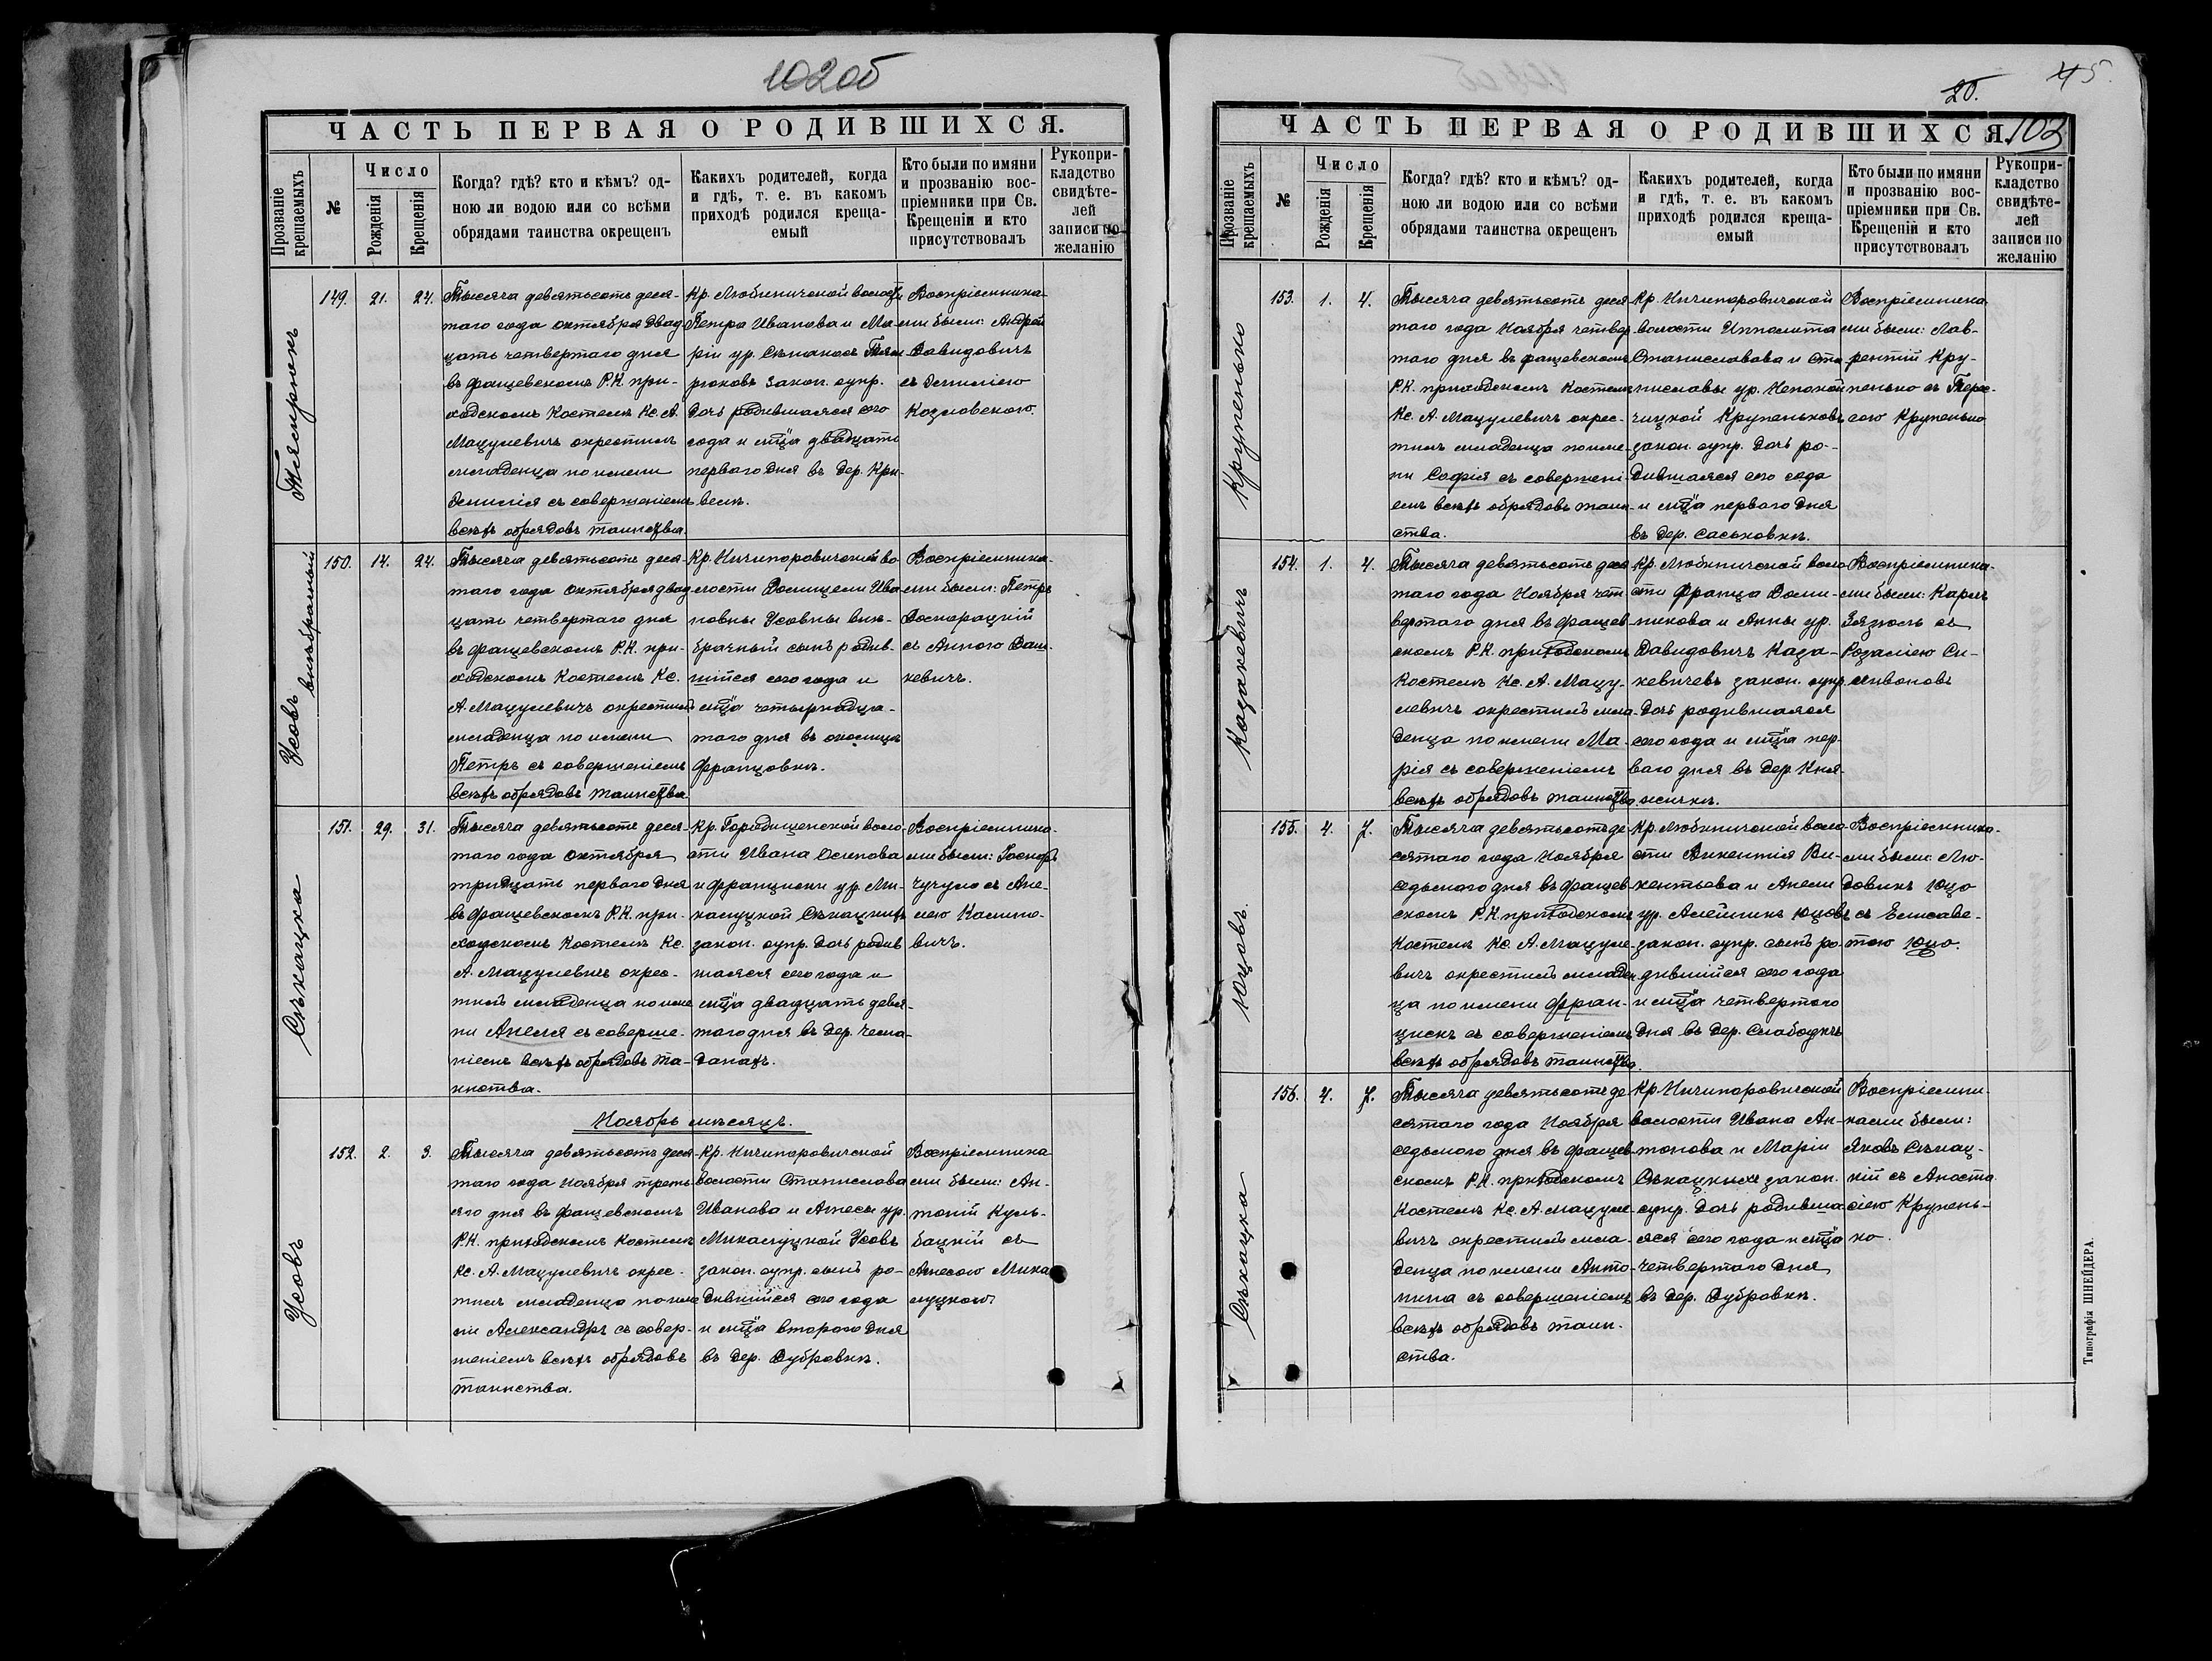 102об
ЧАСТЬ ПЕРВАЯ О РОДИВШИХСЯ.
Прозваніе крещаемыхъ
№
Число
Рожденія
Крещенія
Когда? гдѣ? кто и кѣмъ? од-
ною ли водою или со всѣми
обрядами таинства окрещенъ
Какихъ родителей, когда
и гдѣ, т. е. въ какомъ
приходѣ родился креща-
емый
Кто были по имяни
и прозванію вос-
пріемники при Св.
Крещеніи и кто
присутствовалъ
Рукопри-
кладство
свидѣте-
лей
записи по
желанію
149. 21. 24.
Тысяча девятьсотъ деся-
таго года октября двад
цать четвертаго дня
въ фащевскомъ Р.К. при-
ходскомъ Костелѣ Кс. А.
Мацулевичъ окрестилъ
младенца по имени
съ совершеніемъ
всѣхъ обрядовъ таинства
Кр. Любиничской волости
Петра Иванова и Ма-
ріи ур.
законн. супр.
дочь родившаяся сего
года и мѣсяца двадцать
перваго дня въ дер. Кри-
велѣ.
Воспріемника-
ми были: Андрей
Давидовичъ
съ
Козловскою.
Усовъ
внѣбрачный
150. 14. 24.
Тысяча девятьсотъ деся-
таго года Октября двад
цать четвертаго дня
въ фащевскомъ Р.К. при-
ходскомъ Костелѣ Кс.
А. Мацулевичъ окрестилъ
младенца по имени
Петръ съ совершеніемъ
всѣхъ обрядовъ таинства
Кр. Ничипоровичской во
лости Домицели Ива
новны Усовны внѣ-
брачный сынъ родив-
шійся сего года и
мѣца четырнадца-
таго дня въ околицѣ
Францовкѣ.
Воспріемника-
ми были: Петръ
съ Анною Ваш-
кевичъ.
Сѣкацка
151. 29. 31.
Тысяча девятьсотъ деся-
таго года Октября
тридцать перваго дня
въ фащевскомъ Р.К. при-
ходскомъ Костелѣ Кс.
А. Мацулевичъ окрес-
тилъ младенца по име
ни Анеля съ соверше-
ніемъ всѣхъ обрядовъ та-
инства.
Кр. Городищенской воло-
сти Ивана Осипова
и Францишки ур. Ми-
калуцкой Сѣкацкихъ
закон. супр. дочь родив
шаяся сего года и
мѣца двадцать девя-
таго дня въ дер. Чемо-
данахъ.
Воспріемника-
ми были:
съ Ане-
лею
вичъ.
Ноябрь мѣсяцъ.
Усовъ
152. 2. 3.
Тысяча девятьсотъ деся-
таго года Ноября треть-
яго дня въ фащевскомъ
Р.К. приходскомъ Костелѣ
Кс. А. Мацулевичъ окрес-
тилъ младенца по име
ни Александръ съ совер-
шеніемъ всѣхъ обрядовъ
таинства.
Кр. Ничипоровичской
волости Станислава
Иванова и Агнесы ур.
Микалуцкой Усовъ
закон. супр. сынъ ро-
дившійся сего года
и мѣца второго дня
въ дер. Дубровкѣ.
Воспріемника
ми были: Ан-
тоній Куль-
бацкій съ
Агнесою Мика
луцкою.
45.
20.
103
ЧАСТЬ ПЕРВАЯ О РОДИВШИХСЯ.
Прозваніе крещаемыхъ
№
Число
Рожденія
Крещенія
Когда? гдѣ? кто и кѣмъ? од-
ною ли водою или со всѣми
обрядами таинства окрещенъ
Какихъ родителей, когда
и гдѣ, т. е. въ какомъ
приходѣ родился креща-
емый
Кто были по имяни
и прозванію вос-
пріемники при Св.
Крещеніи и кто
присутствовалъ
Рукопри-
кладство
свидѣте-
лей
записи по
желанію
Крупенько
153. 1. 4.
Тысяча девятьсотъ деся
таго года Ноября четвер
таго дня въ фащевскомъ
Р.К. приходскомъ Костелѣ
Кс. А. Мацулевичъ окрес-
тилъ младенца по име-
ни Софія съ совершені-
емъ всѣхъ обрядовъ таин-
ства.
Кр. Ничипоровичской
волости Ипполита
Станиславова и Ста-
ниславы ур. Непокой
чицкой Крупеньковъ
закон. супр. дочь ро-
дившаяся сего года
и мѣца перваго дня
въ дер. Саськовкѣ.
Воспріемника
ми были: Лав-
рентій Кру-
пенько съ Тере-
сою Крупенько
Кацкевичъ
154. 1. 4.
Тысяча девятьсотъ деся
таго года Ноября чет
вертаго дня въ фащев-
скомъ Р.К. приходскомъ
Костелѣ Кс. А. Мацу-
левичъ окрестилъ мла-
денца по имени Ма-
рія съ совершеніемъ
всѣхъ обрядовъ таинства
Кр. Любиничской воло
сти Франца Доми-
никова и Анны ур.
Давидовичъ Каза-
кевичевъ закон. супр.
дочь родившаяся
сего года и мѣца пер-
ваго дня въ дер. Кня-
жичкѣ.
Воспріемника-
ми были: Карлъ
Зязюль съ
Розаліею Си-
Юцовъ.
155. 4. 7.
Тысяча девятьсотъ де-
сятаго года Ноября
седьмого дня въ фащев-
скомъ Р.К. приходскомъ
Костелѣ Кс. А. Мацуле-
вичъ окрестилъ младен
ца по имени Фран-
цискъ съ совершеніемъ
всѣхъ обрядовъ таинства.
Кр. Любиничской воло-
сти Викентія Ви-
кентьева и Анели
ур. Юцовъ
закон. супр. сынъ ро-
дившійся сего года
и мѣца четвертого
дня въ дер. Слабодкѣ
Воспріемника-
ми были: Лю-
довикъ Юцо
съ Елисаве-
тою Юцо.
Сѣкацка
156. 4. 7.
Тысяча девятьсотъ де
сятаго года Ноября
седьмого дня въ фащев-
скомъ Р.К. приходскомъ
Костелѣ Кс. А. Мацуле-
вичъ окрестилъ мла-
денца по имени Анто-
нина съ совершеніемъ
всѣхъ обрядовъ таин-
ства.
Кр. Ничипоровичской
волости Ивана Ан-
тонова и Маріи
Сѣкацкихъ закон.
супр. дочь родивша
яся сего года и мѣца
четвертаго дня
въ дер. Дубровкѣ.
Воспріемни-
ками были:
Яковъ Сѣкац-
кій съ Анаста
сіею Крупень-
ко.
Типографія ШНЕЙДЕРА.